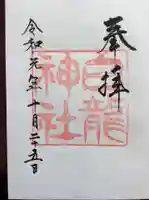 奉拝
白龍神社
令和元年十月二十五日